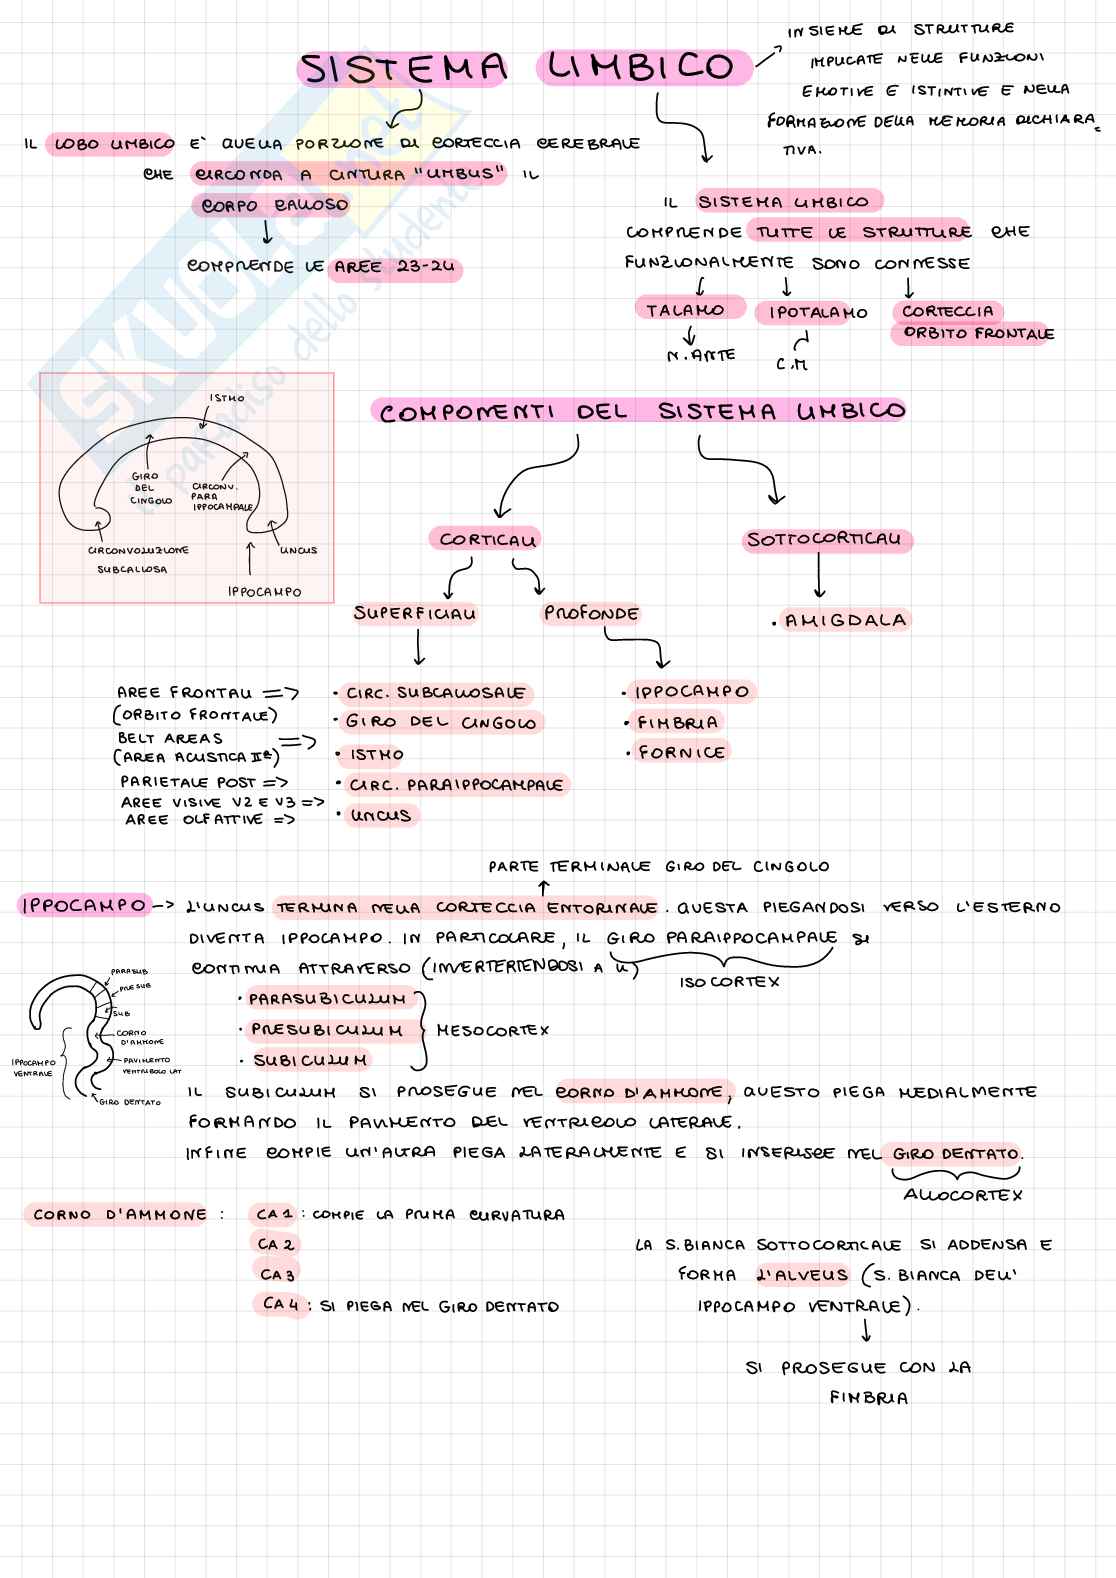 SISTEMA LIMBICO
INSIEME DI STRUTTURE
IMPLICATE NELLE FUNZIONI
EMOTIVE E ISTINTIVE E NELLA
FORMAZIONE DELLA MEMORIA DICHIARA
TIVA.
IL LOBO LIMBICO E' QUELLA PORZIONE DI CORTECCIA CEREBRALE
CHE CIRCONDA A CINTURA "LIMBUS" IL
CORPO CALLOSO
COMPRENDE LE AREE 23-24
IL SISTEMA LIMBICO
COMPRENDE TUTTE LE STRUTTURE CHE
FUNZIONALMENTE SONO CONNESSE
TALAMO IPOTALAMO CORTECCIA
ORBITO FRONTALE
N. ANTE C.M
ISTMO
GIRO
DEL
CINGOLO
CIRCONV.
PARA
IPPOCAMPALE
CIRCONVOLUZIONE
SUBCALLOSA
UNCUS
IPPOCAMPO
COMPONENTI DEL SISTEMA LIMBICO
CORTICALI SOTTOCORTICALI
SUPERFICIALI PROFONDE • AMIGDALA
AREE FRONTALI => • CIRC. SUBCALLOSALE
(ORBITO FRONTALE) • GIRO DEL CINGOLO
BELT AREAS =>
(AREA ACUSTICA IIª) • ISTMO
PARIETALE POST => • CIRC. PARAIPPOCAMPALE
AREE VISIVE V2 E V3 =>
AREE OLFATTIVE => • UNCUS
• IPPOCAMPO
• FIMBRIA
• FORNICE
PARTE TERMINALE GIRO DEL CINGOLO
IPPOCAMPO -> L'UNCUS TERMINA NELLA CORTECCIA ENTORINALE. QUESTA PIEGANDOSI VERSO L'ESTERNO
DIVENTA IPPOCAMPO. IN PARTICOLARE, IL GIRO PARAIPPOCAMPALE SI
CONTINUA ATTRAVERSO (INVERTERTENDOSI A U)
ISOCORTEX
• PARASUBICULUM
• PRESUBICULUM
• SUBICULUM
MESOCORTEX
PARASUB
PRESUB
SUB
CORNO
D'AMMONE
IPPOCAMPO
VENTRALE
PAVIMENTO
VENTRICOLO LAT
GIRO DENTATO
IL SUBICULUM SI PROSEGUE NEL CORNO D'AMMONE, QUESTO PIEGA MEDIALMENTE
FORMANDO IL PAVIMENTO DEL VENTRICOLO LATERALE.
INFINE COMPIE UN'ALTRA PIEGA LATERALMENTE E SI INSERISCE NEL GIRO DENTATO.
ALLOCORTEX
CORNO D'AMMONE : CA1 : COMPIE LA PRIMA CURVATURA
CA2
CA3
CA4 : SI PIEGA NEL GIRO DENTATO
LA S.BIANCA SOTTOCORTICALE SI ADDENSA E
FORMA L'ALVEUS (S. BIANCA DELL'
IPPOCAMPO VENTRALE).
SI PROSEGUE CON LA
FIMBRIA